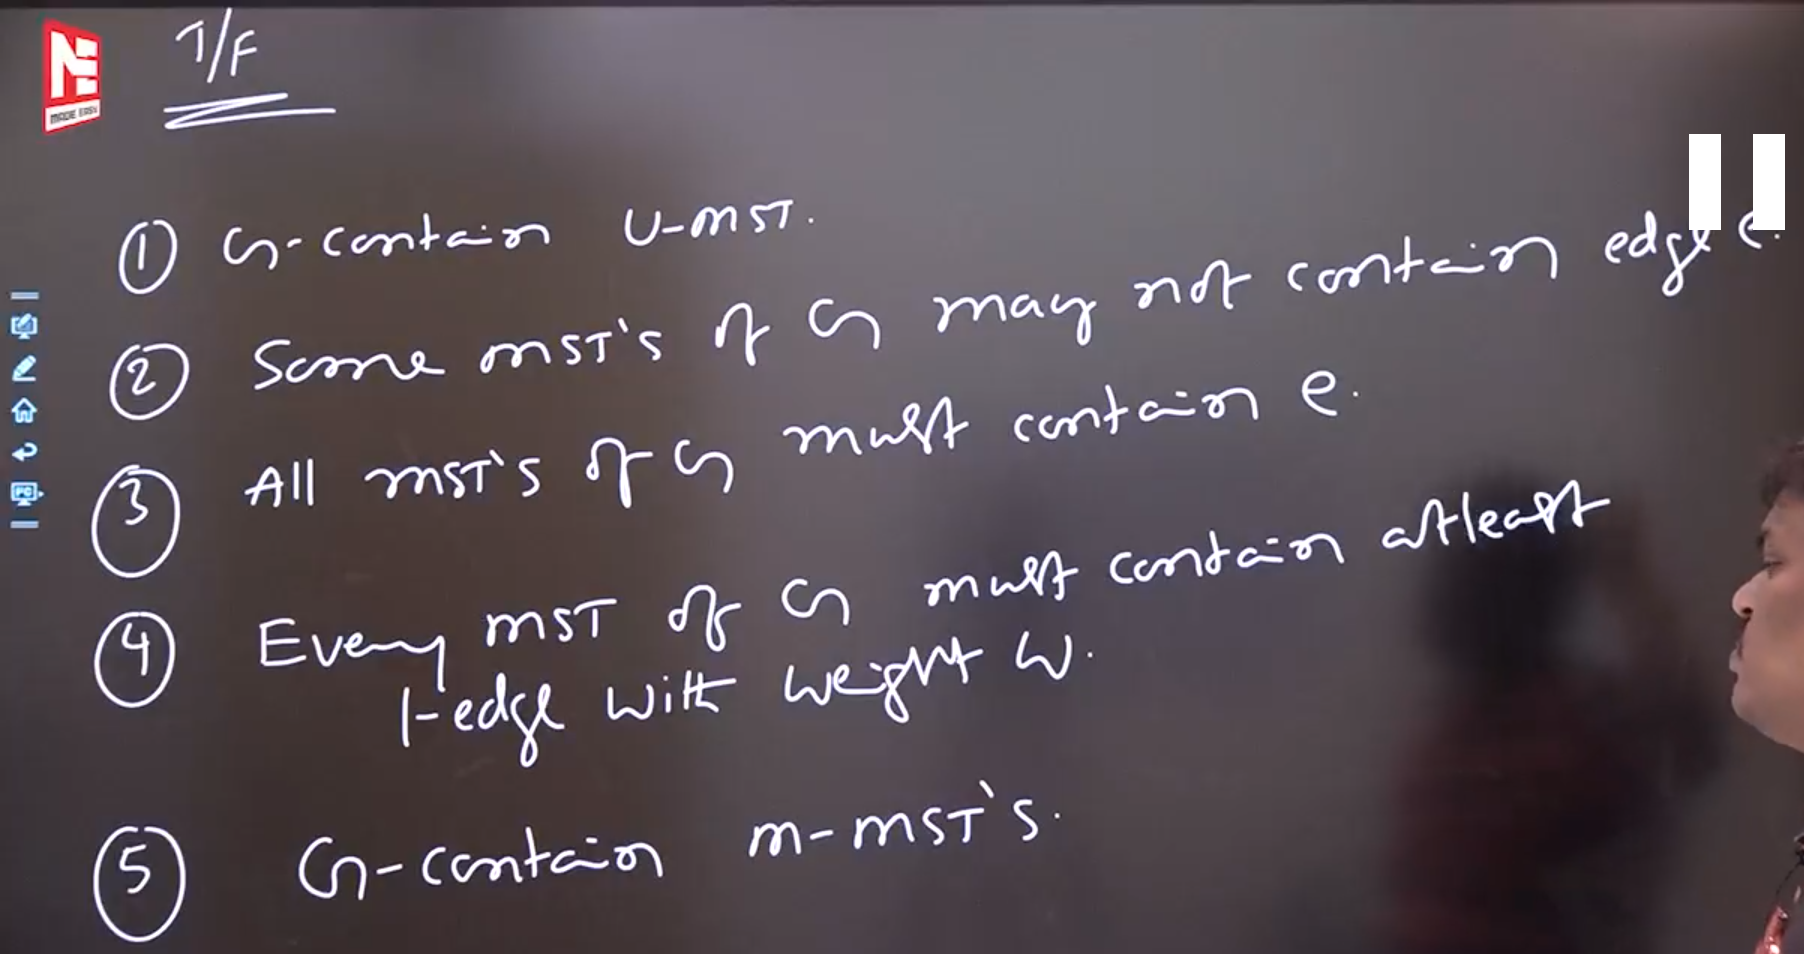 MADE EASY
T/F
① G-contain U-MST.
② Some MST's of G may not contain edge e.
③ All MST's of G must contain e.
④ Every MST of G must contain atleast
1-edge with weight W.
⑤ G-contain m-MST's.
PC